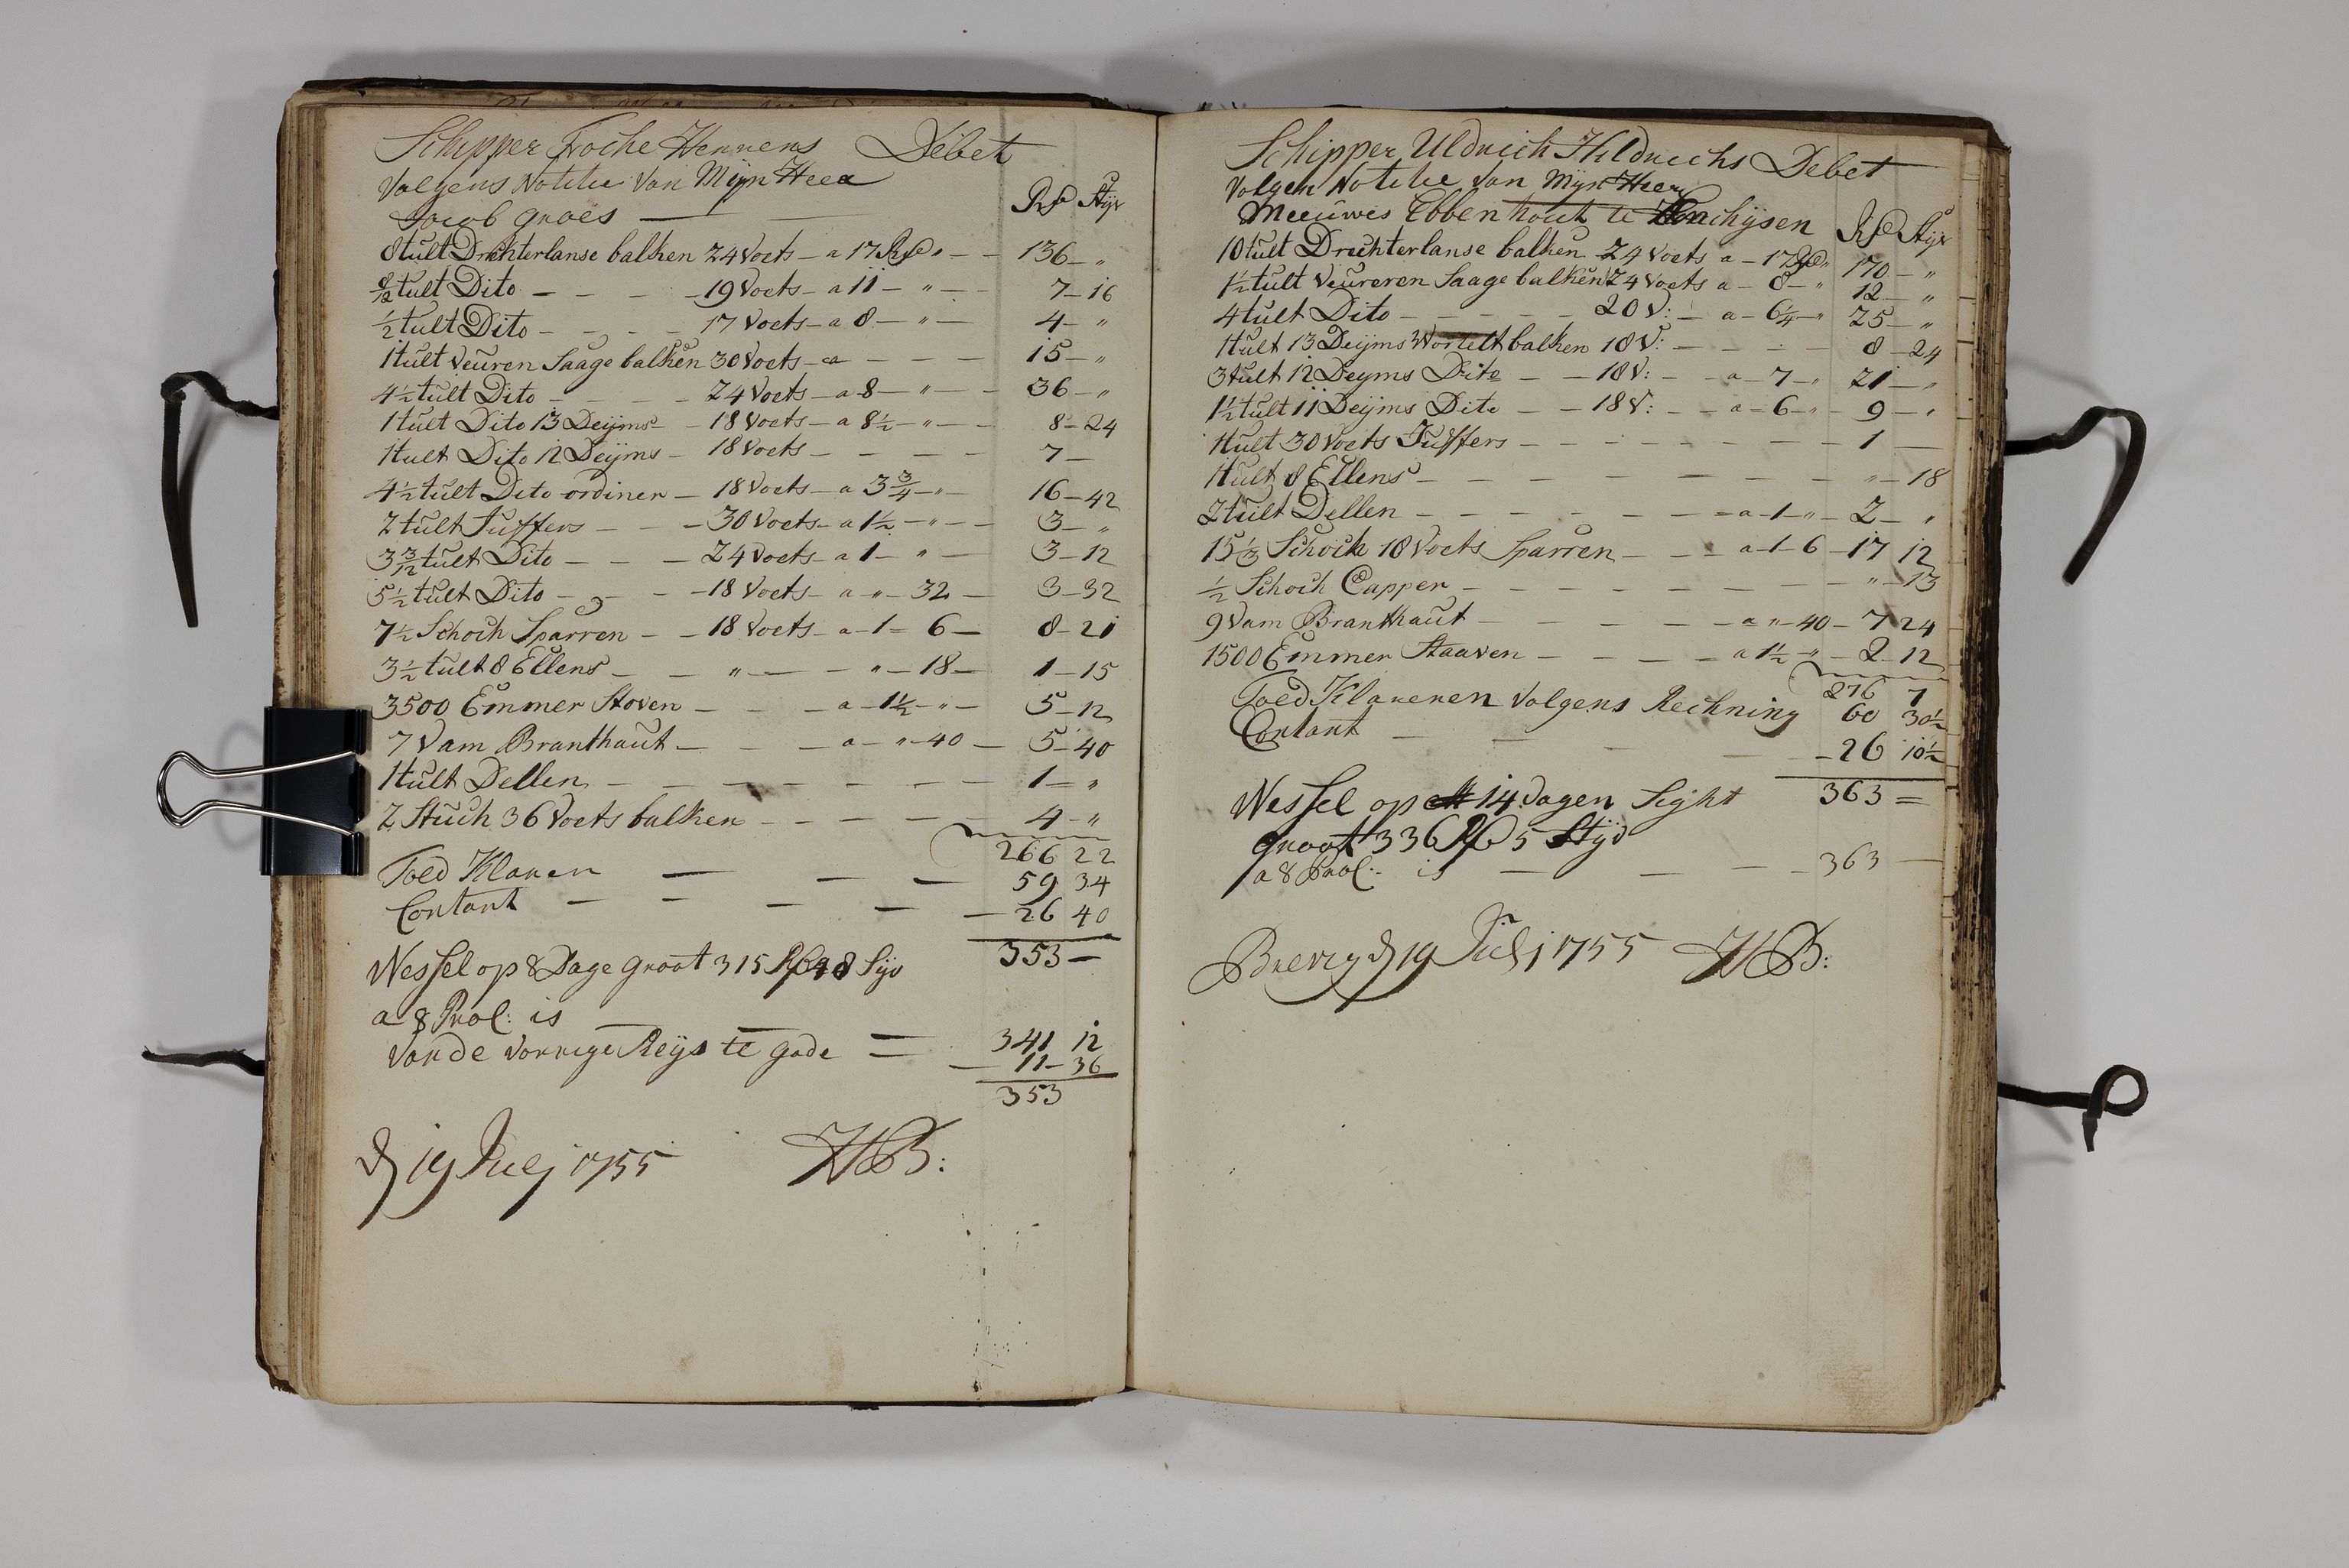 Schipper Foche Hennens Debet
Volgens Notitie Van Mijn Heer
Jacob Groes — Rd Stijv
8 tult Drechterlanse balken 24 Voets – a 17 Rd " – – 136 – "
8/12 tult Dito – – – – 19 Voets – a 11 – " – 7 – 16
½ tult Dito – – – – 17 Voets – a 8 – " – 4 – "
1 tult Veuren Saage balken 30 Voets – a – – – 15 – "
4½ tult Dito – – – – 24 Voets – a 8 – " – 36 – "
1 tult Dito 13 Deijms – – 18 Voets – a 8½ – " – 8 – 24
1 tult Dito 12 Deijms – 18 Voets – – – – 7 –
4½ tult Dito ordiner – 18 Voets – a 3¾ – " – 16 – 42
2 tult Juffers – – – 30 Voets – a 1½ – " – 3 – "
3 3/12 tult Dito – – – 24 Voets – a 1 – " – 3 – 12
5½ tult Dito – – – 18 Voets – a – " – 32 – 3 – 32
7½ Schock Sparren – – 18 Voets – a – 1 – 6 – 8 – 21
3½ tult 8 Ellens – – " – – " – 18 – 1 – 15
3500 Emmer Stoven – – – a – 1½ – " – 5 – 12
7 Vam Branthaut – – – a – " – 40 – 5 – 40
1 tult Dellen – – – – – – – 1 – "
2 Stuck 36 Voets balken – – – – 4 – "
266 22
Toed Klaren — — — 59 34
Contant — — — — 26 40
353 –
Wessel op 8 Dage groot 315 Rd 48 Sijv
a 8 Prol: is — — 341 12
Van de Vorrige Reijs te gode = 11 – 36
353
d 19 Julij 1755 HB:
Schipper Uldrich Hildrichs Debet
Volgen Notitie Van Mijn Heer
Meeuwes Ebbenhout te Enchijsen Rd Stijv
10 tult Drechterlanse balken 24 Voets a – 17 Rd " 170 – "
1½ tult Veureren Saage balken 24 Voets a – 8 – " 12 – "
4 tult Dito – – – – – 20 V: – a – 6¼ – " 25 – "
1 tult 13 Deijms Wortelt balken 18 V: – – – – 8 – 24
3 tult 12 Deyms Dito – – 18 V: – a – 7 – " 21 – "
1½ tult 11 Deijms Dito – – 18 V: – – a – 6 – " 9 – "
1 tult 30 Voets Juffers – – – – – – – 1 –
1 tult 8 Ellens – – – – – – – – " – 18
2 tult Dellen – – – – – – – a – 1 – " – 2 – "
15⅓ Schock 18 Voets Sparren – – – a – 1 – 6 – 17 12
½ Schock Capper – – – – – – – – " – 13
9 Vam Branthaut – – – – – a – " – 40 – 7 24
1500 Emmer Staaven – – – – a 1½ – " – 2 – 12
276 7
Toed Klareren Volgens Rechning 60 30½
Contant – – – – 26 10½
363 =
Wessel op 14 Dagen Sight
groot 336 Rd 5 Stijv
a 8 Prol: is — — — 363 —
d 19 Julij 1755 HB: